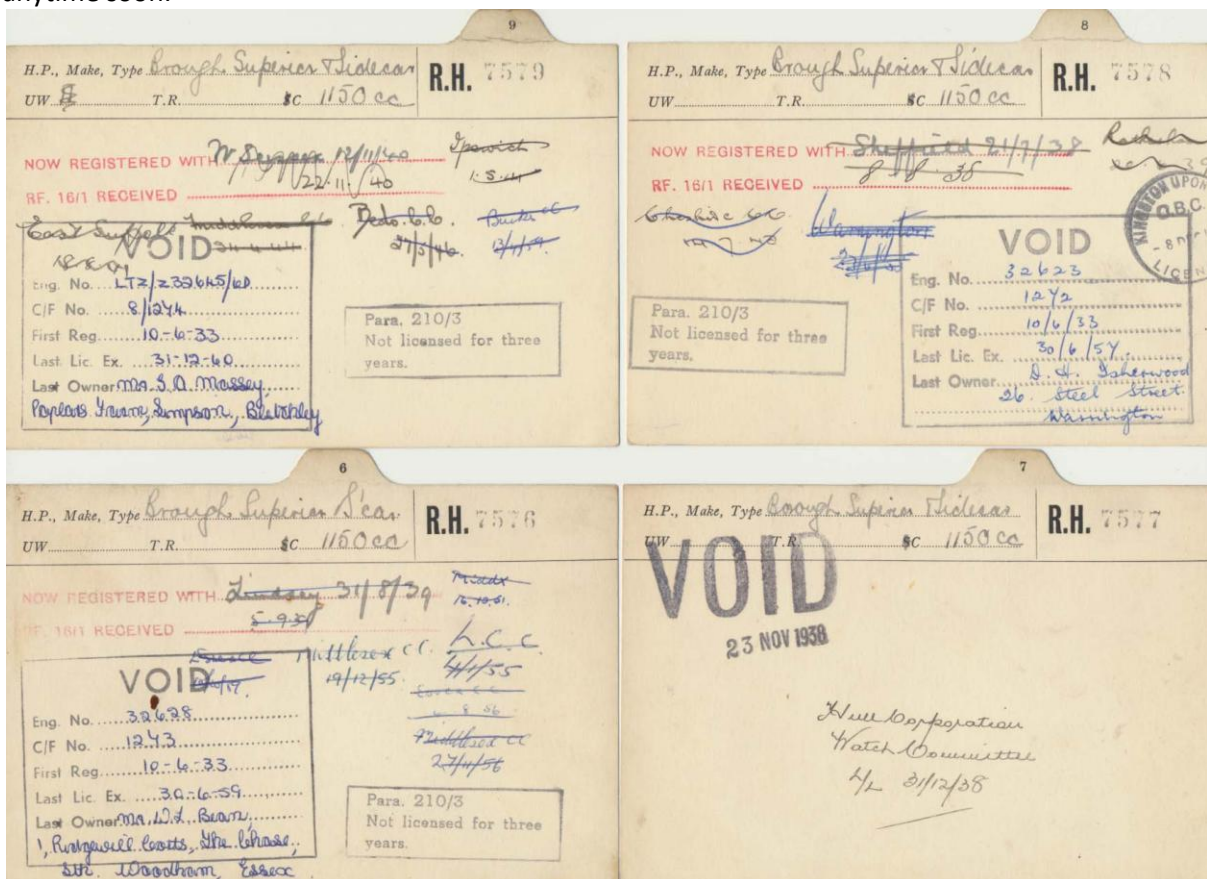 anytime soon.
9
H.P., Make, Type Brough Superior & Sidecar
R.H. 7579
UW T.R. $C 1150 cc
NOW REGISTERED WITH 12/11/40
Ipswich
RF. 16/1 RECEIVED 22.11.40
East Suffolk
Beds. C.C.
27/5/46
Bucks CC
VOID
Eng. No. LTZ/Z32645/60
C/F No. 8/1274
First Reg. 10-6-33
Last Lic. Ex. 31-12-60
Last Owner Mr. S.A. Massey,
Poplars Farm, Simpson, Bletchley
Para. 210/3
Not licensed for three
years.
8
H.P., Make, Type Brough Superior & Sidecar
R.H. 7578
UW T.R. $C 1150 cc
NOW REGISTERED WITH Sheffield 21/7/38
RF. 16/1 RECEIVED 8 8 38
Cheshire CC
Warrington
KINGSTON UPON
VOID
Eng. No. 32623
C/F No. 1272
First Reg. 10/6/33
Last Lic. Ex. 30/6/57.
Last Owner D. H. Isherwood
26. Steel Street.
Warrington
Para. 210/3
Not licensed for three
years.
6
H.P., Make, Type Brough Superior S'car
R.H. 7576
UW T.R. $C 1150 cc
NOW REGISTERED WITH Lindsey 31/8/39
RF. 16/1 RECEIVED 5-9-39
Middx
16.10.51.
Middlesex CC.
19/12/55.
L.C.C.
4/1/55
Essex CC
6 8 56
Middlesex CC
27/11/56
VOID
Eng. No. 32628
C/F No. 1243
First Reg. 10-6-33
Last Lic. Ex. 30-6-59
Last Owner Mr. W.L. Bean,
1, Ridgewell Cotts, The Chase,
Sth. Woodham, Essex
Para. 210/3
Not licensed for three
years.
7
H.P., Make, Type Brough Superior & Sidecar
R.H. 7577
UW T.R. $C 1150 cc
VOID
23 NOV 1938
Hull Corporation
Watch Committee
L/L 31/12/38